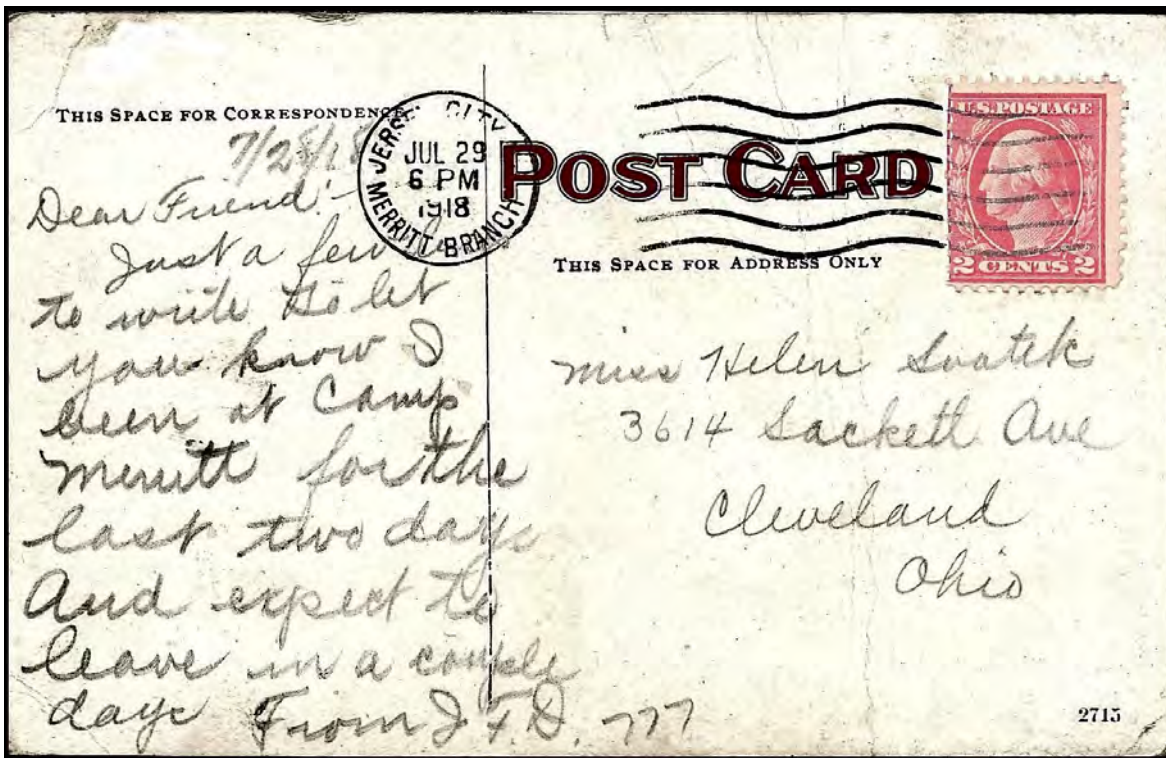 THIS SPACE FOR CORRESPONDENCE
7/28/18
Dear Friend:-
Just a few
to write to let
you know I
been at Camp
Merritt for the
last two days
And expect to
leave in a couple
days From J.F.D.
JERSEY CITY
JUL 29
6 PM
1918
MERRITT BRANCH
POST CARD
THIS SPACE FOR ADDRESS ONLY
U.S. POSTAGE
2 CENTS 2
Miss Helen Svatek
3614 Sackett Ave
Cleveland
Ohio
2715